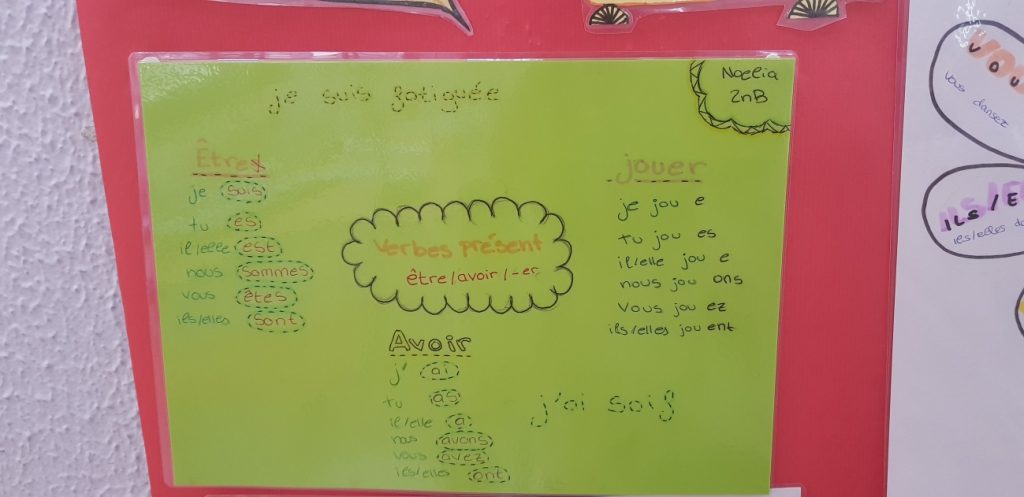 je suis fatiguée
Noelia
2nB
Être
je suis
tu es
il/elle est
nous sommes
vous êtes
ils/elles sont
Verbes présent
être/avoir/-er
jouer
je jou e
tu jou es
il/elle jou e
nous jou ons
vous jou ez
ils/elles jou ent
Avoir
j' ai
tu as
il/elle a
nous avons
vous avez
ils/elles ont
j'ai soif
vous dansez
ILS/E
ils/elles da